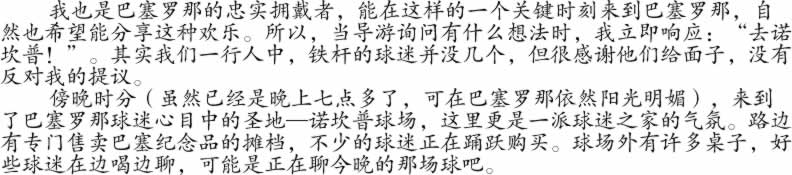 我也是巴塞罗那的忠实拥戴者，能在这样的一个关键时刻来到巴塞罗那，自
然也希望能分享这种欢乐。所以，当导游询问有什么想法时，我立即响应：“去诺
坎普！”。其实我们一行人中，铁杆的球迷并没几个，但很感谢他们给面子，没有
反对我的提议。
傍晚时分（虽然已经是晚上七点多了，可在巴塞罗那依然阳光明媚），来到
了巴塞罗那球迷心目中的圣地—诺坎普球场，这里更是一派球迷之家的气氛。路边
有专门售卖巴塞纪念品的摊档，不少的球迷正在踊跃购买。球场外有许多桌子，好
些球迷在边喝边聊，可能是正在聊今晚的那场球吧。